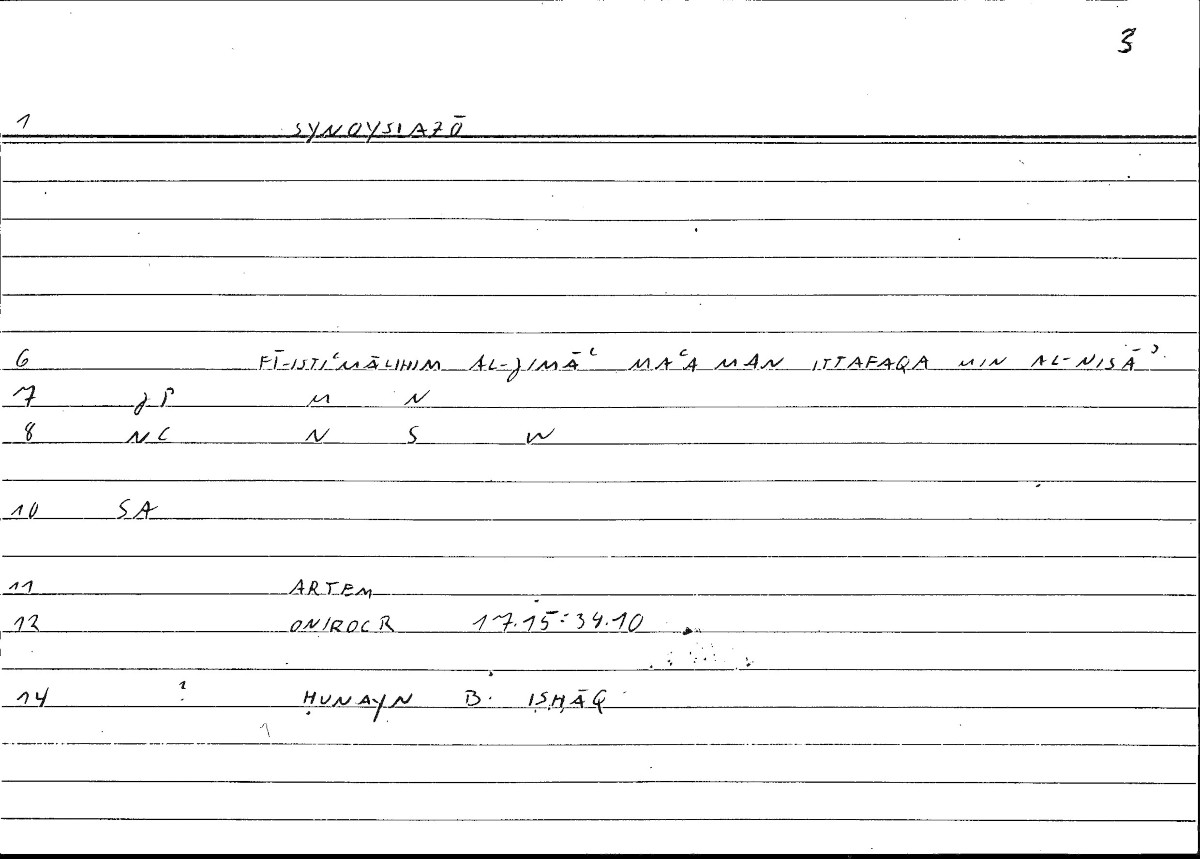 3
1 SYNOYSIAZŌ
6 FĪ-ISTIʿMĀLIHIM AL-ǧIMĀʿ MAʿA MAN ITTAFAQA MIN AL-NISĀʾ
7 ǧP M N
8 NC N S W
10 SA
11 ARTEM
12 ONIROCR 17.15:34.10
14 ? ḤUNAYN B. ISḤĀQ